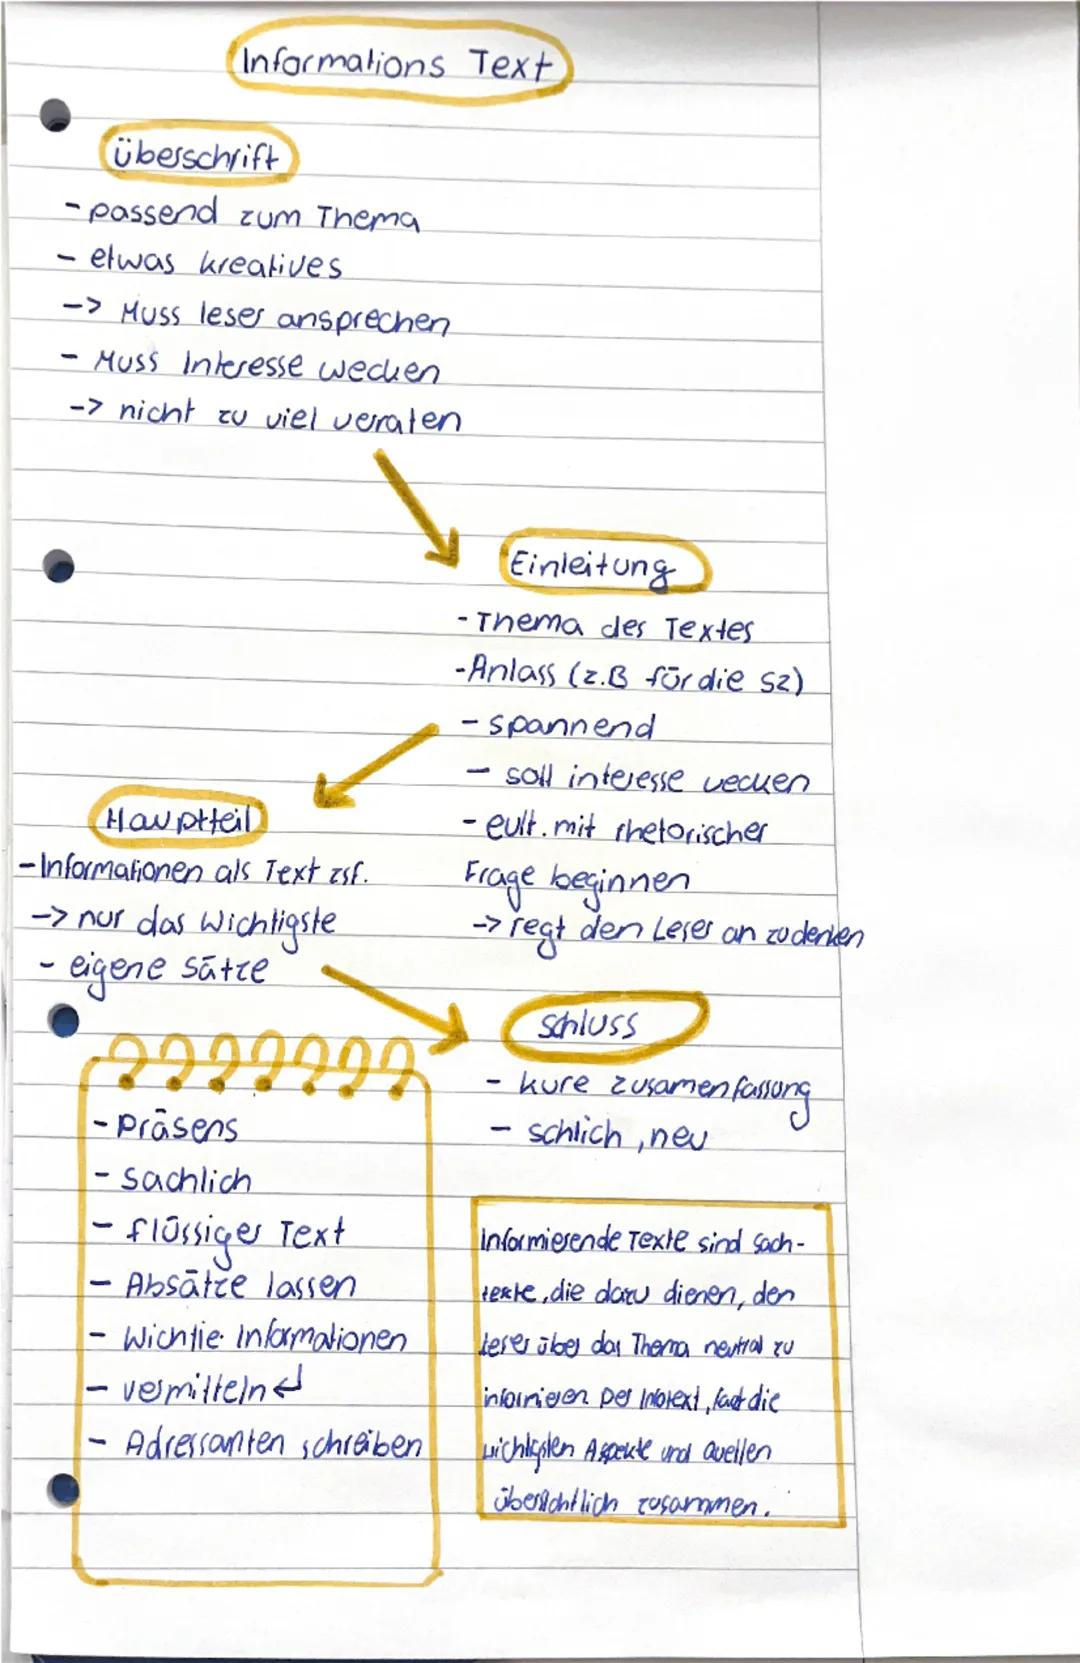 Informations Text
überschrift
- passend zum Thema
- etwas kreatives
-> Muss leser ansprechen
- Muss Interesse wecken
-> nicht zu viel veraten
Einleitung
- Thema des Textes
- Anlass (z.B für die SZ)
- spannend
- soll interesse wecken
- evlt. mit rhetorischer
Frage beginnen
-> regt den Leser an zu denken
Hauptteil
- Informationen als Text zsf.
-> nur das Wichtigste
- eigene Sätze
Schluss
- kure zusamenfassung
- schlich, neu
- Präsens
- Sachlich
- flüssiger Text
- Absätze lassen
- Wichtie Informationen
- vermitteln ↵
- Adressanten schreiben
Informierende Texte sind Sach-
texte, die dazu dienen, den
Leser über das Thema neutral zu
informieren Der Infotext, fast die
wichtigsten Aspekte und Quellen
übersichtlich zusammen.